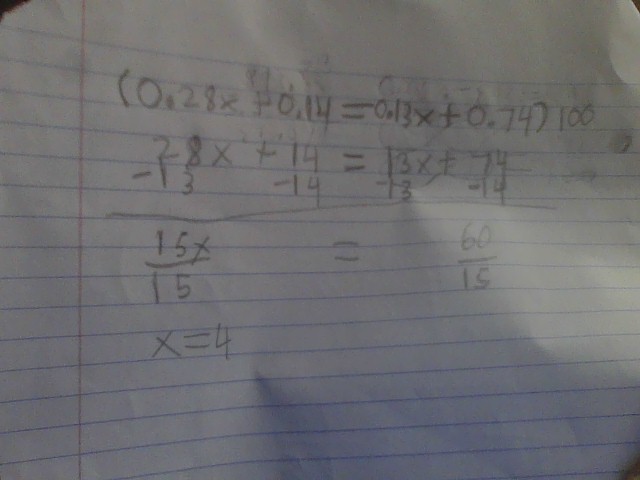 (0.28x + 0.14 = 0.13x + 0.74) 100
28x + 14 = 13x + 74
-13 -14 -13 -14
15x = 60
15 15
x = 4